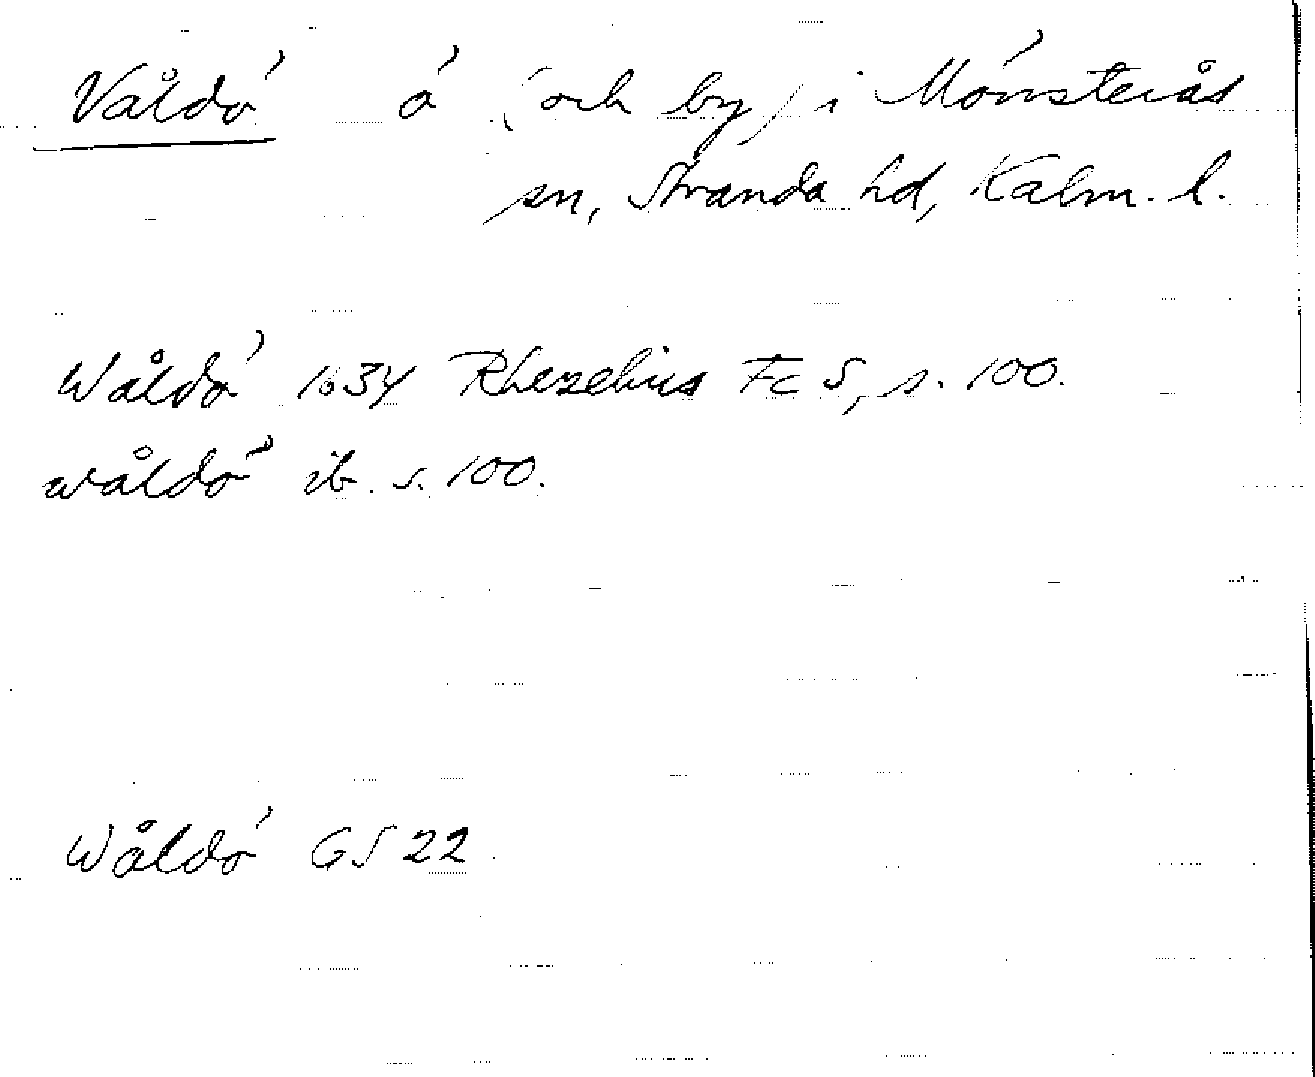 Våldö ö (och by) i Mönsterås
sn, Stranda hd, Kalm. l.
Wåldö 1634 Rhezelius Fc 5, s. 100.
wåldö ib. s. 100.
Wåldö GS 22